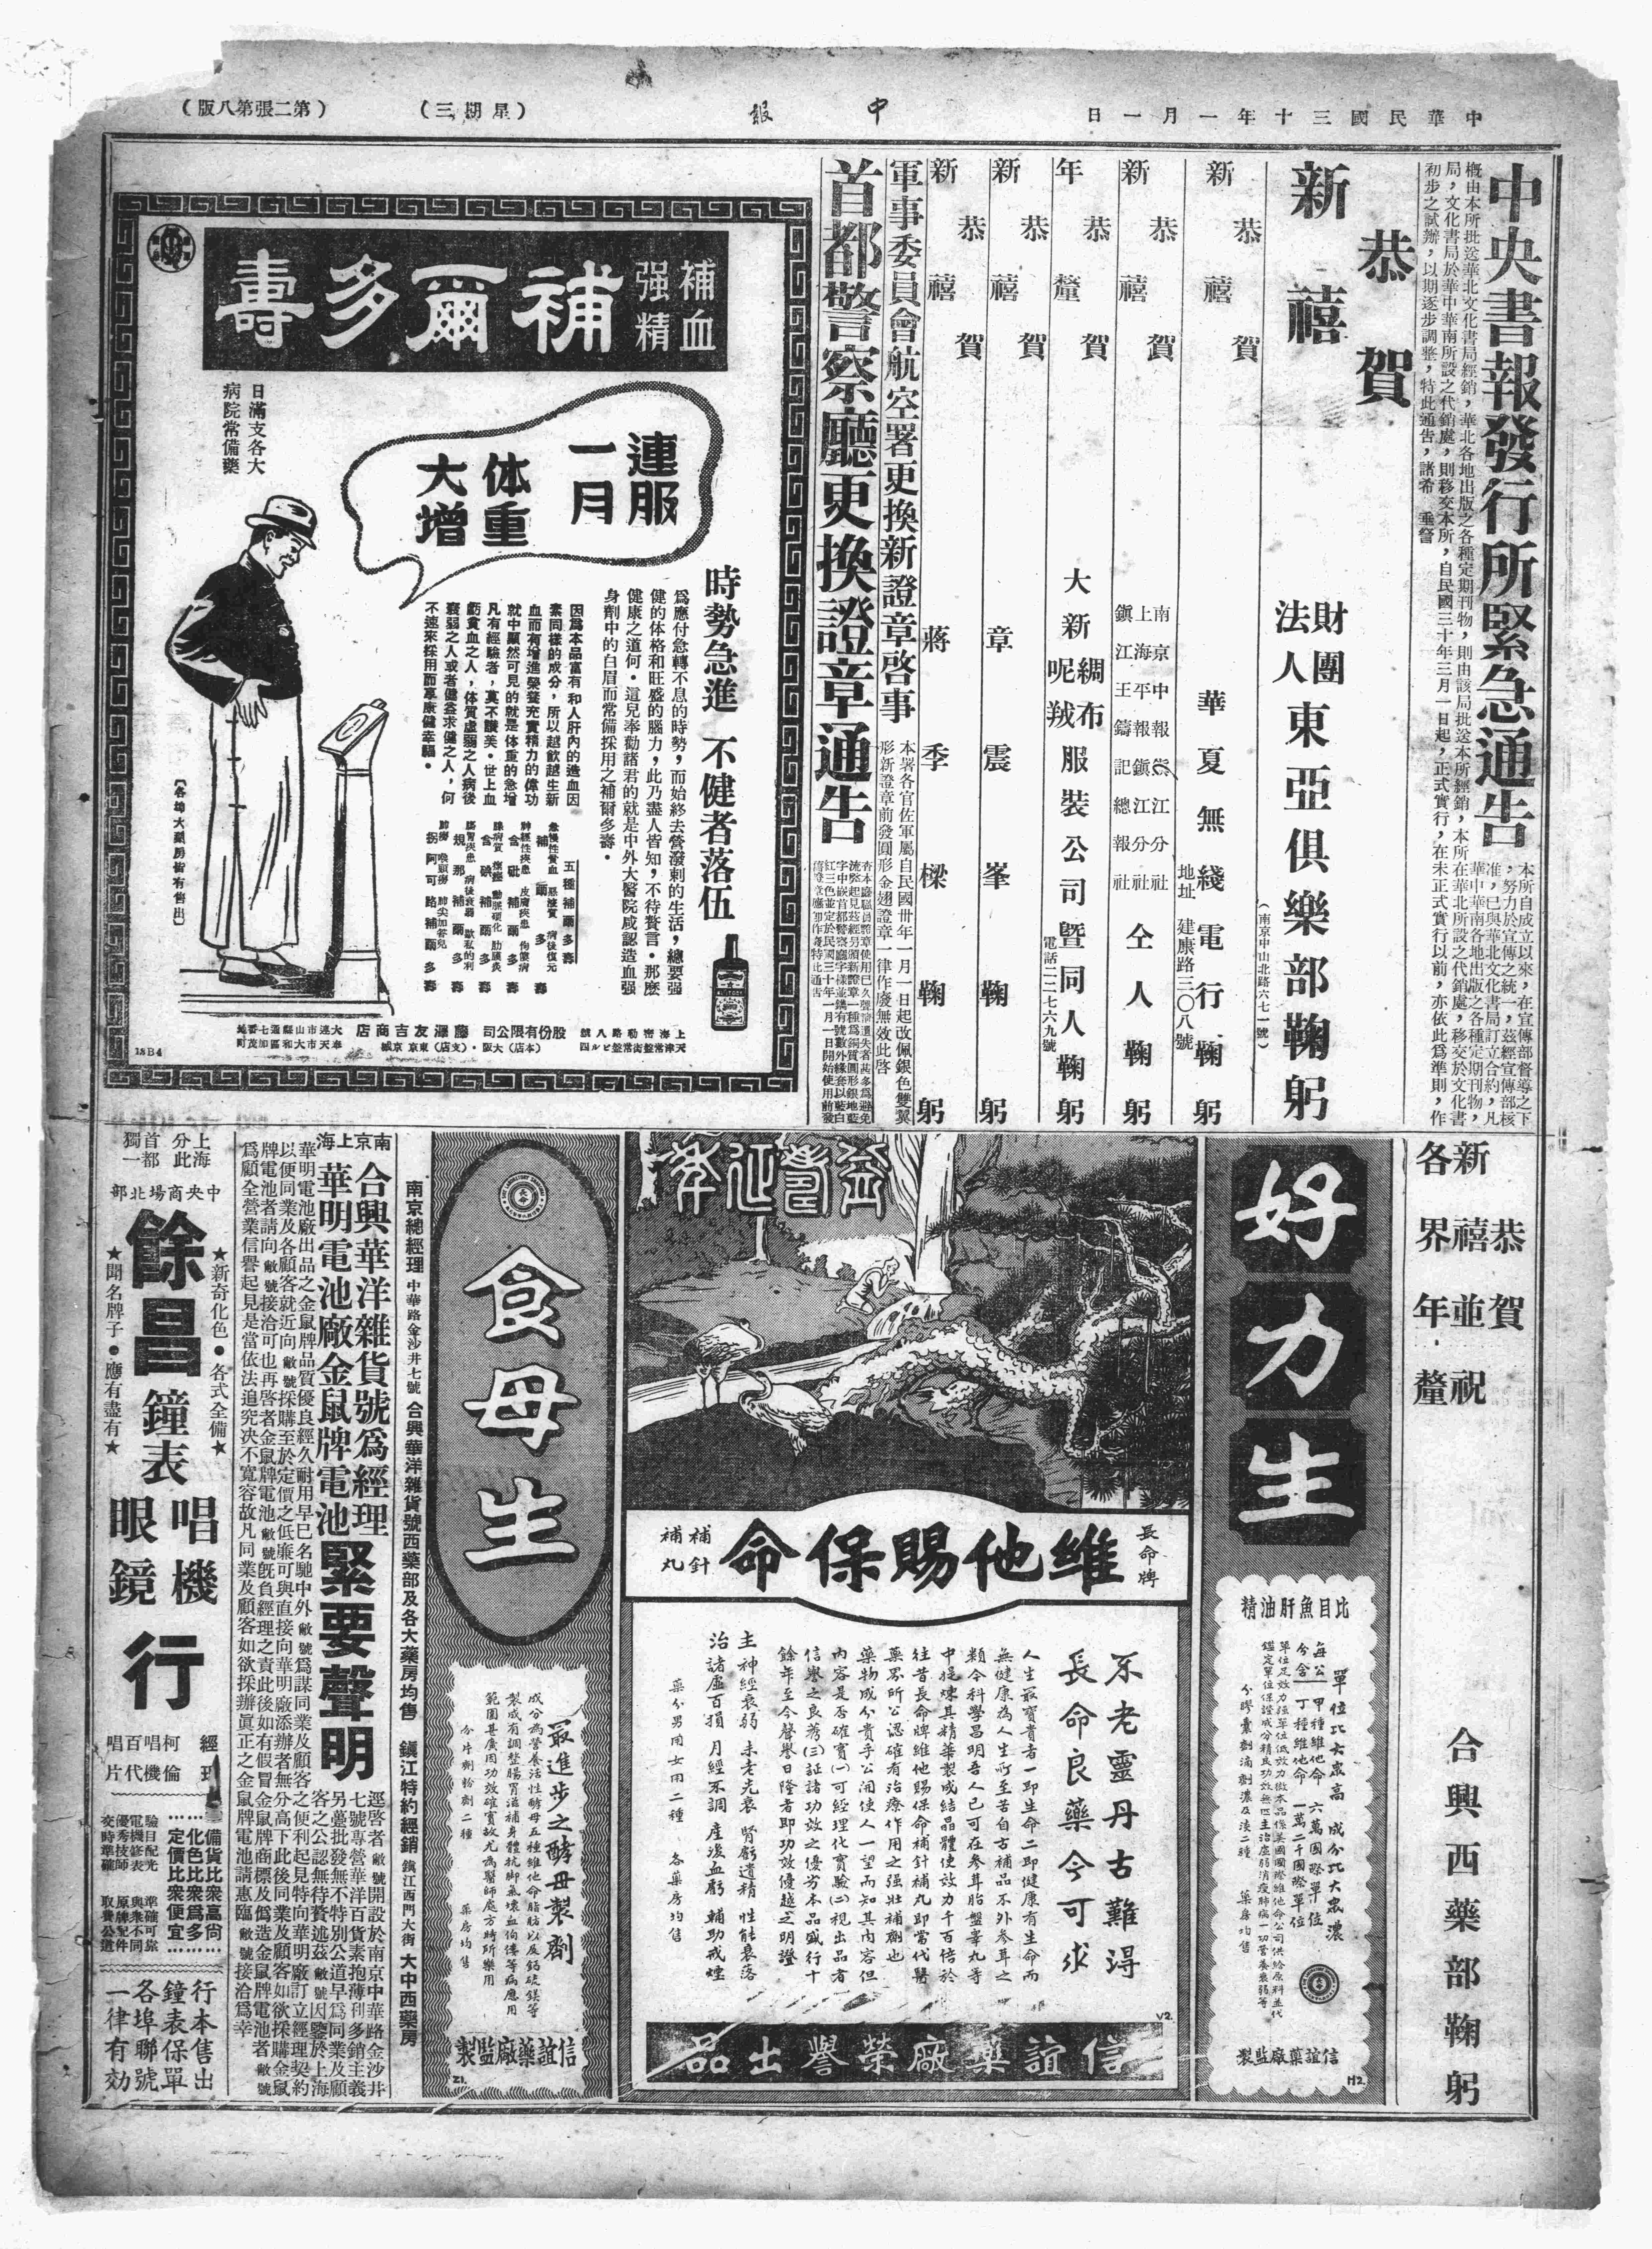 中華民國三十年一月一日
中報
（星期三）
（第二張第八版）
中央書報發行所緊急通告
本所自成立以來，在宣傳部督導之下
，努力於宣傳之統一，茲經宣傳部核
准，已與華北文化書局訂立合約，凡
華中華南各地出版之各種定期刊物，
在華北所設之代銷處，移交於文化書
在未正式實行以前，亦依此爲準則，作
概由本所批送華北文化書局經銷，華北各地出版之各種定期刊物，則由該局批送本所經銷，本所
局，文化書局於華中華南所設之代銷處，則移交本所，自民國三十年三月一日起，正式實行，
初步之試辦，以期逐步調整，特此通告，諸希　垂詧
恭賀
新禧
財團
法人
東亞俱樂部鞠躬
（南京中山北路六七一號）
恭賀
新禧
華夏無綫電行鞠躬
地址　建康路三〇八號
恭賀
新禧
南京中報
上海平報鎮江分社
鎮江王鑄記總報社
仝人鞠躬
恭賀
年釐
大新綢布呢羢服裝公司暨同人鞠躬
電話二二七六九號
恭賀
新禧
章震峯鞠躬
恭賀
新禧
蔣季樑鞠躬
軍事委員會航空署更換新證章啓事
本署各官佐軍屬自民國卅年一月一日起改佩銀色雙翼
形新證章前發圓形金翅證章一律作廢無效此啓
首都警察廳更換證章通告
補血
强精
補爾多壽
日滿支各大
病院常備藥
連服
一月
体重
大增
時勢急進　不健者落伍
爲應付急轉不息的時勢，而始終去營潑剌的生活，總要强
健的体格和旺盛的腦力，此乃盡人皆知，不待贅言。那麽
健康之道何。這兒奉勸諸君的就是中外大醫院咸認造血强
身劑中的白眉而常備採用之補爾多壽。
因爲本品富有和人肝內的造血因
素同樣的成分，所以越飲越生新
血而有增進榮養充實精力的偉功
就中顯然可見的就是体重的急增
凡有經驗者，莫不讚美。世上血
虧貧血之人，体質虛弱之人病後
衰弱之人或者健益求健之人，何
不速來採用而享康健幸福。
五種補爾多壽
補爾多壽
含砒補爾多壽
含碘補爾多壽
規那補爾多壽
拐阿可路補爾多壽
〔各埠大藥房皆有售出〕
股份有限公司　藤澤友吉商店
（本店）大阪・（支店）東京 京城
18B4
恭賀
新禧並祝
各界年釐
合興西藥部鞠躬
好力生
比目魚肝油精
單位比大衆高　成分比大衆濃
每公分含
甲種維他命　六萬國際單位
丁種維他命　一萬二千國際單位
藥房均售
信誼藥廠監製
H2.
益壽延年
長命牌
維他賜保命
補針
補丸
不老靈丹古難得
長命良藥今可求
人生最寶貴者一即生命二即健康有生命而
無健康為人生所至苦自古補品不外參茸之
類令科學昌明吾人已可在參茸胎盤睾丸等
中提煉其精華製成結晶體使效力千百倍於
往昔長命牌維他賜保命補針補丸即當代醫
藥界所公認確有治療作用之强壯補劑也
藥物成分貴乎公開使人一望而知其內容但
內容是否確實㈠可經理化實驗㈡視出品者
信譽之良莠㈢証諸功效之優劣本品盛行十
餘年至今聲譽日隆者即功效優越之明證
主　神經衰弱　未老先衰　腎虧遺精　性能衰落
治　諸虛百損　月經不調　產後血虧　輔助戒煙
藥分男用女用二種　各藥房均售
V2.
信誼藥廠榮譽出品
食母生
最進步之酵母製劑
成分為營養活性酵母五種維他命脂肪以及鈣硫鎂等
製成有調整腸胃滋補身體抗脚氣壞血佝僂等病應用
範圍甚廣因功效確實故尤為醫師處方時所樂用
分片劑粉劑二種　藥房均售
信誼藥廠監製
Z1.
南京總經理　中華路金沙井七號　合興華洋雜貨號西藥部及各大藥房均售　鎮江特約經銷　鎮江西門大街　大中西藥房
南京合興華洋雜貨號爲經理
上海華明電池廠金鼠牌電池
緊要聲明
逕啓者敝號開設於南京中華路金沙井
七號專營華洋百貨素抱薄利多銷主義
另躉批發無不特別公道早爲同業及顧
客之公認無待贅述茲敝號因鑒於上海
華明電池廠出品之金鼠牌品質優良經久耐用早已名馳中外敝號爲謀同業及顧客之便利起見特向華明廠訂立經理契約
以便同業及各顧客就近向敝號採購至於定價之低廉可與直接向華明廠添辦者無分高下此後同業及顧客如欲採購金鼠
牌電池者請向敝號接洽可也再啓者金鼠牌電池敝號旣負經理之責此後如有假冒金鼠牌商標及僞造金鼠牌電池者敝號
爲顧全營業信譽起見是當依法追究決不寬容故凡同業及顧客如欲採辦眞正之金鼠牌電池請惠臨敝號接洽爲幸
上海分此
首都獨一
中央商場北部
★新奇化色●各式全備★
餘昌
鐘表
唱機
眼鏡
行
★聞名牌子●應有盡有★
經理
柯倫
唱機
百代
唱片
備貨比衆高尙……
化色比衆爲多……
定價比衆便宜……
驗目配光　準確可靠
電機修表　與衆不同
優秀技師　原牌配件
交時準確　取費公道
行本售出
鐘表保單
各埠聯號
一律有効